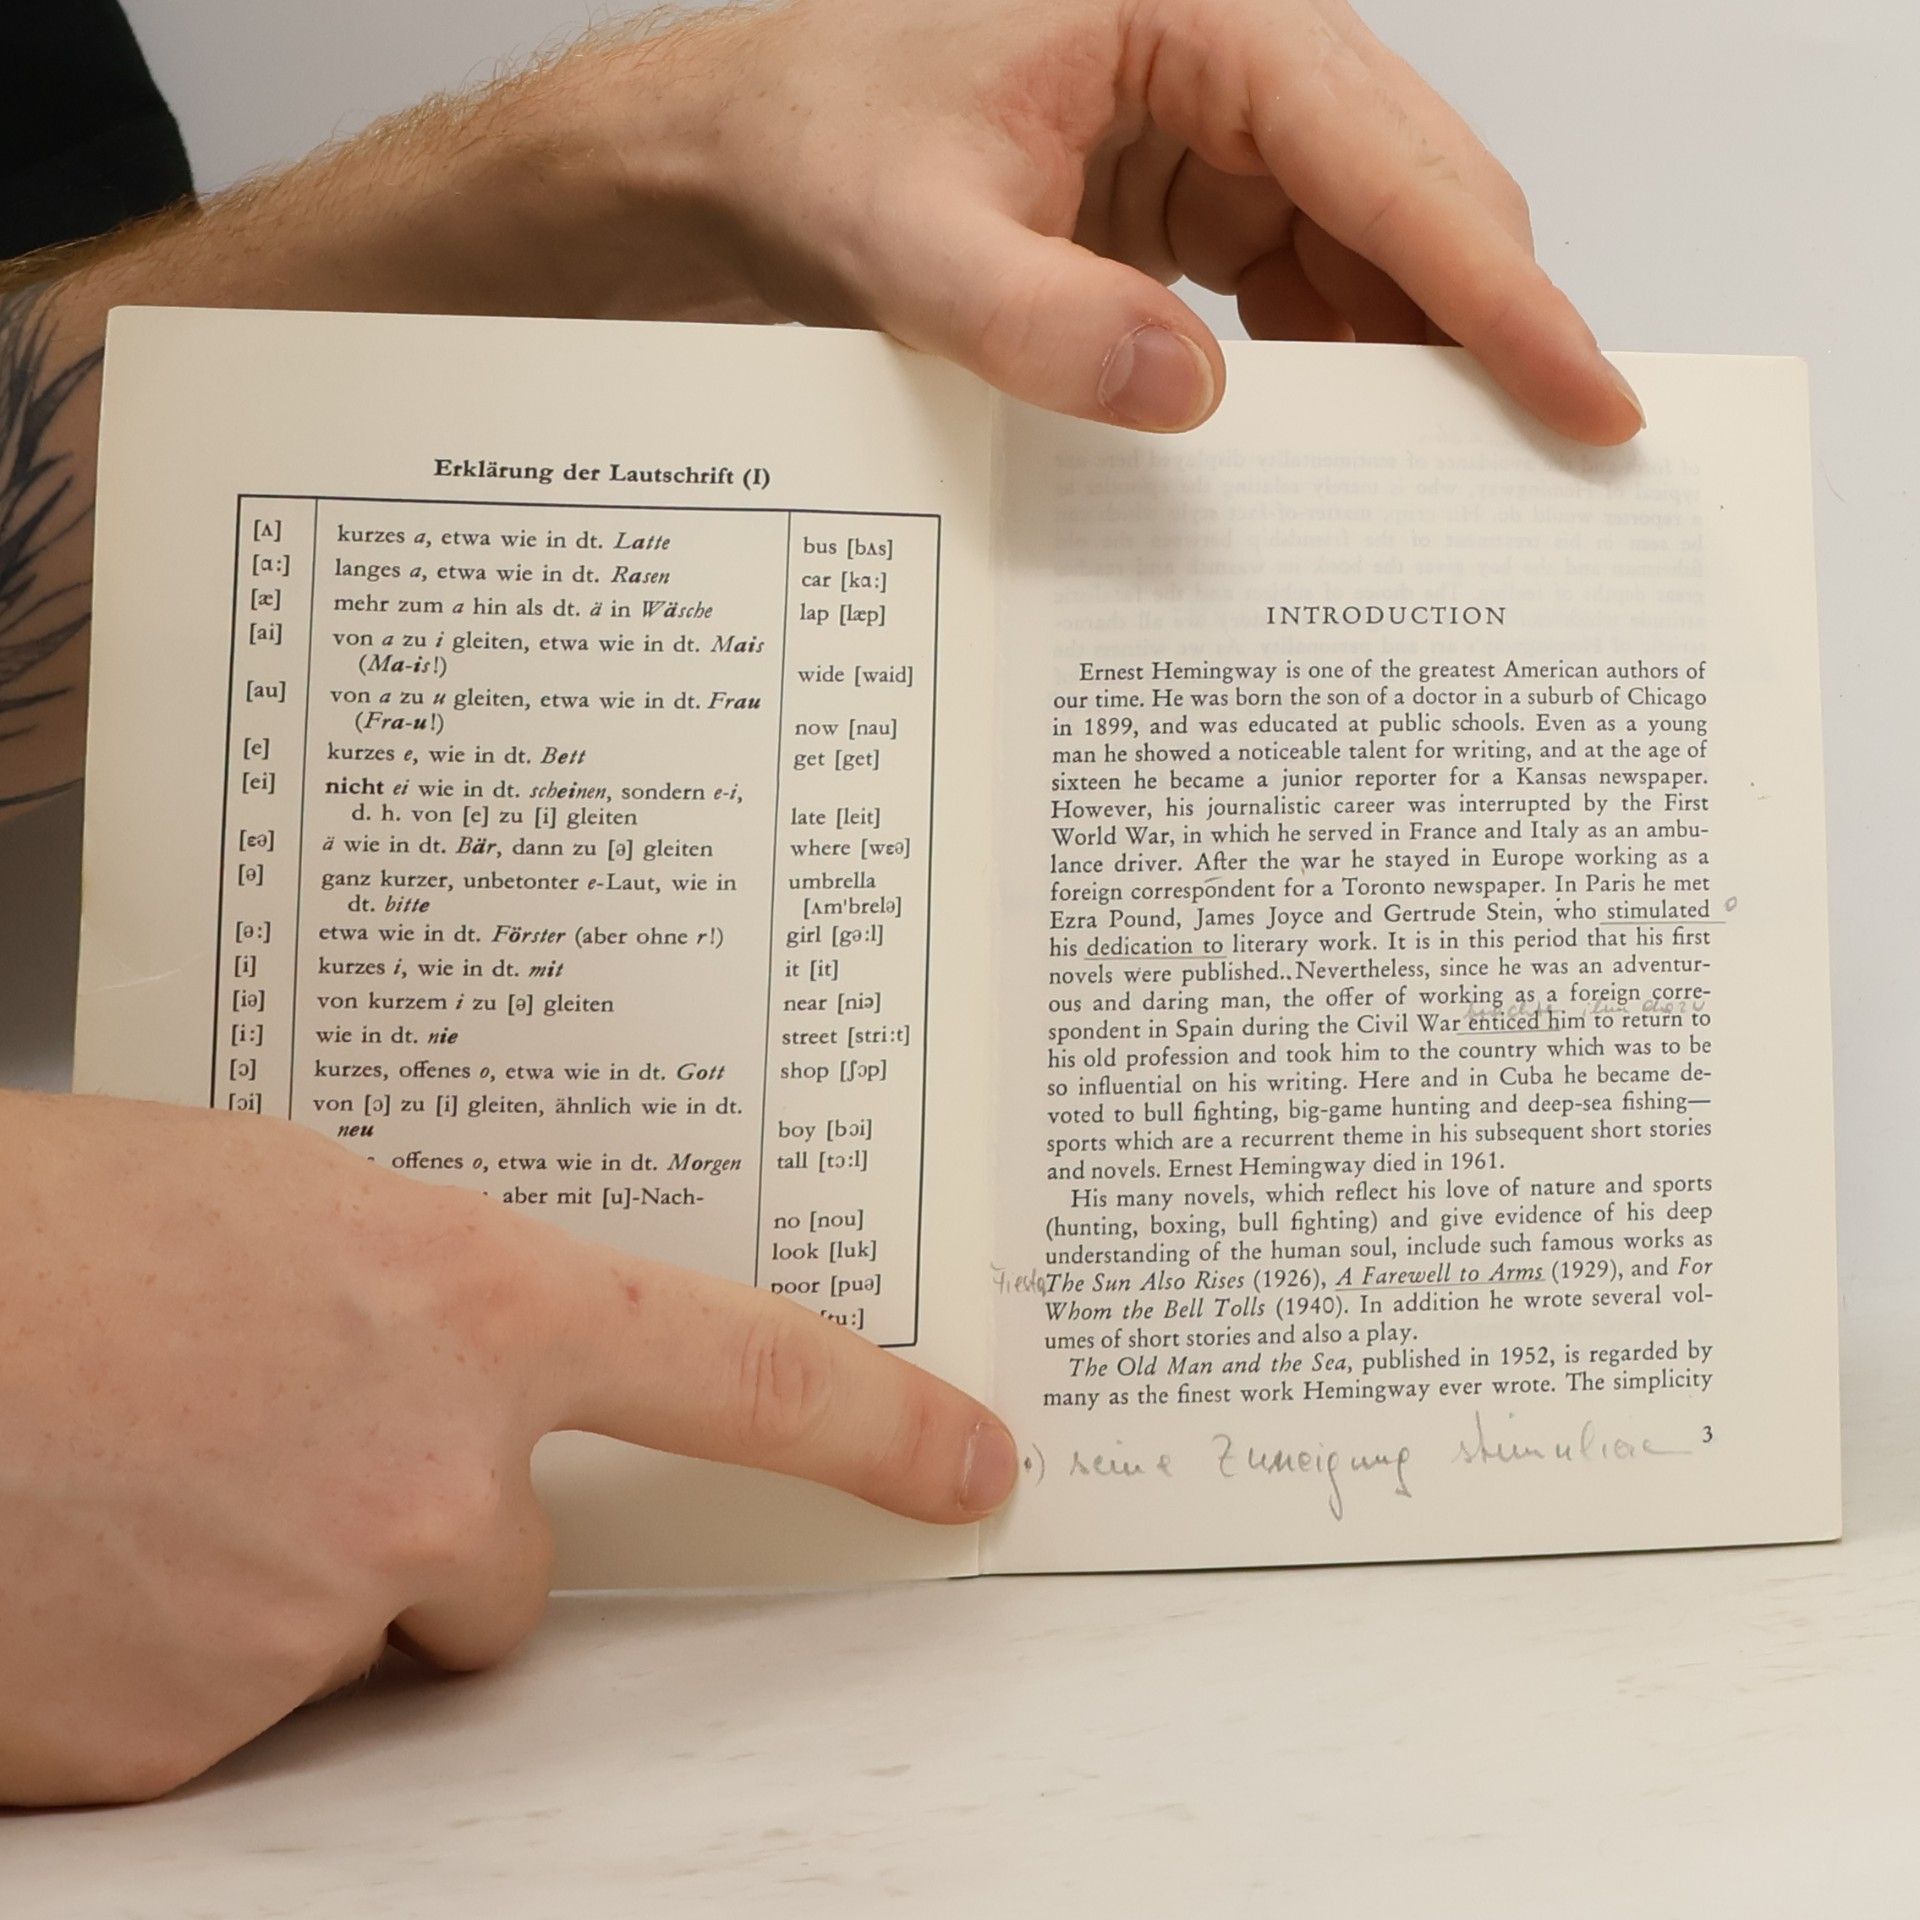 Erklärung der Lautschrift (I)
[ʌ] kurzes a, etwa wie in dt. Latte bus [bʌs]
[ɑ:] langes a, etwa wie in dt. Rasen car [kɑ:]
[æ] mehr zum a hin als dt. ä in Wäsche lap [læp]
[ai] von a zu i gleiten, etwa wie in dt. Mais
(Ma-is!) wide [waid]
[au] von a zu u gleiten, etwa wie in dt. Frau
(Fra-u!) now [nau]
[e] kurzes e, wie in dt. Bett get [get]
[ei] nicht ei wie in dt. scheinen, sondern e-i,
d. h. von [e] zu [i] gleiten late [leit]
[ɛə] ä wie in dt. Bär, dann zu [ə] gleiten where [wɛə]
[ə] ganz kurzer, unbetonter e-Laut, wie in umbrella
dt. bitte [ʌm'brelə]
[ə:] etwa wie in dt. Förster (aber ohne r!) girl [gə:l]
[i] kurzes i, wie in dt. mit it [it]
[iə] von kurzem i zu [ə] gleiten near [niə]
[i:] wie in dt. nie street [stri:t]
[ɔ] kurzes, offenes o, etwa wie in dt. Gott shop [ʃɔp]
[ɔi] von [ɔ] zu [i] gleiten, ähnlich wie in dt.
neu boy [bɔi]
offenes o, etwa wie in dt. Morgen tall [tɔ:l]
aber mit [u]-Nach-
no [nou]
look [luk]
poor [puə]
tu:]
INTRODUCTION
Ernest Hemingway is one of the greatest American authors of
our time. He was born the son of a doctor in a suburb of Chicago
in 1899, and was educated at public schools. Even as a young
man he showed a noticeable talent for writing, and at the age of
sixteen he became a junior reporter for a Kansas newspaper.
However, his journalistic career was interrupted by the First
World War, in which he served in France and Italy as an ambu-
lance driver. After the war he stayed in Europe working as a
foreign correspondent for a Toronto newspaper. In Paris he met
Ezra Pound, James Joyce and Gertrude Stein, who stimulated
his dedication to literary work. It is in this period that his first
novels were published.. Nevertheless, since he was an adventur-
ous and daring man, the offer of working as a foreign corre-
ihn dazu
spondent in Spain during the Civil War enticed him to return to
his old profession and took him to the country which was to be
so influential on his writing. Here and in Cuba he became de-
voted to bull fighting, big-game hunting and deep-sea fishing—
sports which are a recurrent theme in his subsequent short stories
and novels. Ernest Hemingway died in 1961.
His many novels, which reflect his love of nature and sports
(hunting, boxing, bull fighting) and give evidence of his deep
understanding of the human soul, include such famous works as
Fiesta The Sun Also Rises (1926), A Farewell to Arms (1929), and For
Whom the Bell Tolls (1940). In addition he wrote several vol-
umes of short stories and also a play.
The Old Man and the Sea, published in 1952, is regarded by
many as the finest work Hemingway ever wrote. The simplicity
3
seine Zuneigung